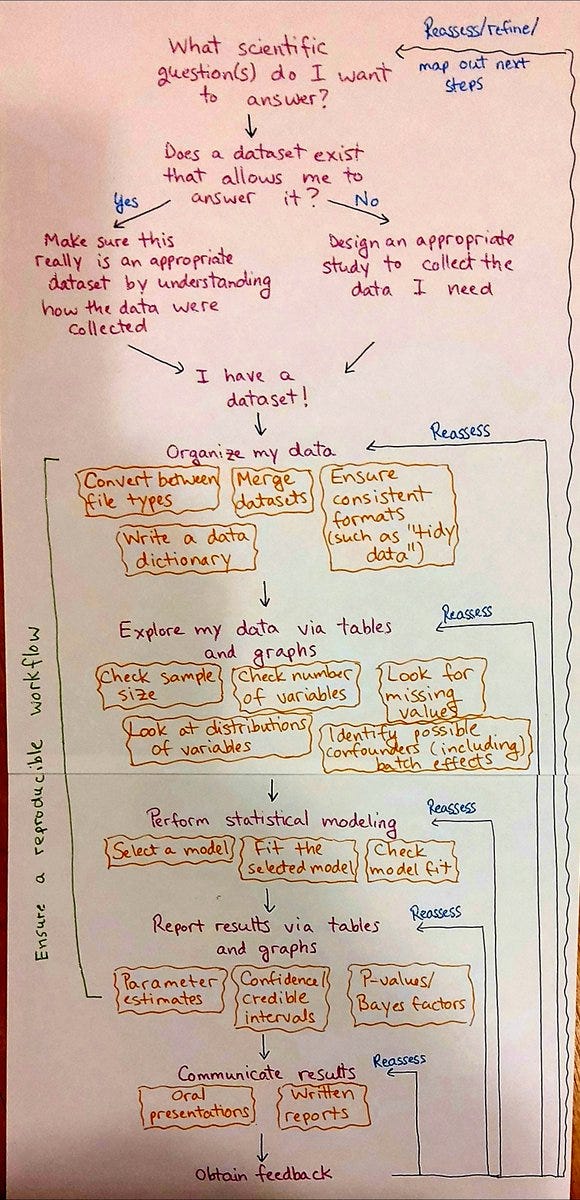 Reassess/refine/
map out next
steps
What scientific
question(s) do I want
to answer?
Does a dataset exist
that allows me to
answer it?
Yes
No
Make sure this
really is an appropriate
dataset by understanding
how the data were
collected
Design an appropriate
study to collect the
data I need
I have a
dataset!
Reassess
Organize my data
Convert between
file types
Merge
datasets
Ensure
consistent
formats
(such as "tidy
data")
Write a data
dictionary
Reassess
Explore my data via tables
and graphs
Check sample
size
Check number
of variables
Look for
missing
values
Look at distributions
of variables
Identify possible
confounders (including)
batch effects
Ensure a reproducible workflow
Reassess
Perform statistical modeling
Select a model
Fit the
selected model
Check
model fit
Reassess
Report results via tables
and graphs
Parameter
estimates
Confidence/
credible
intervals
P-values/
Bayes factors
Reassess
Communicate results
Oral
presentations
Written
reports
Obtain feedback